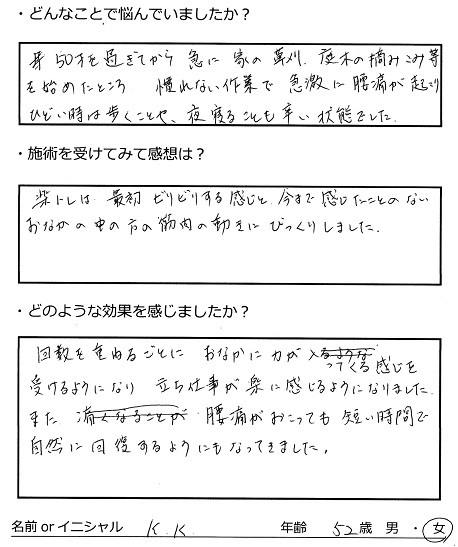 ・どんなことで悩んでいましたか？
50才を過ぎてから 急に 家の 草刈、庭木の摘みこみ等
を始めたところ 慣れない作業で 急激に腰痛が起こり
ひどい時は歩くことや、夜寝ることも辛い状態でした。
・施術を受けてみて感想は？
楽トレは、最初 ビリビリする感じと、今まで感じたことのない
おなかの中の方の筋肉の動きに びっくりしました。
・どのような効果を感じましたか？
回数を重ねるごとに おなかに力が 入ってくる感じを
受けるようになり 立ち仕事が楽に感じるようになりました。
また 腰痛がおこっても 短い時間で
自然に回復するようにもなってきました。
名前 or イニシャル K.K. 年齢 52歳 男 ・ 女